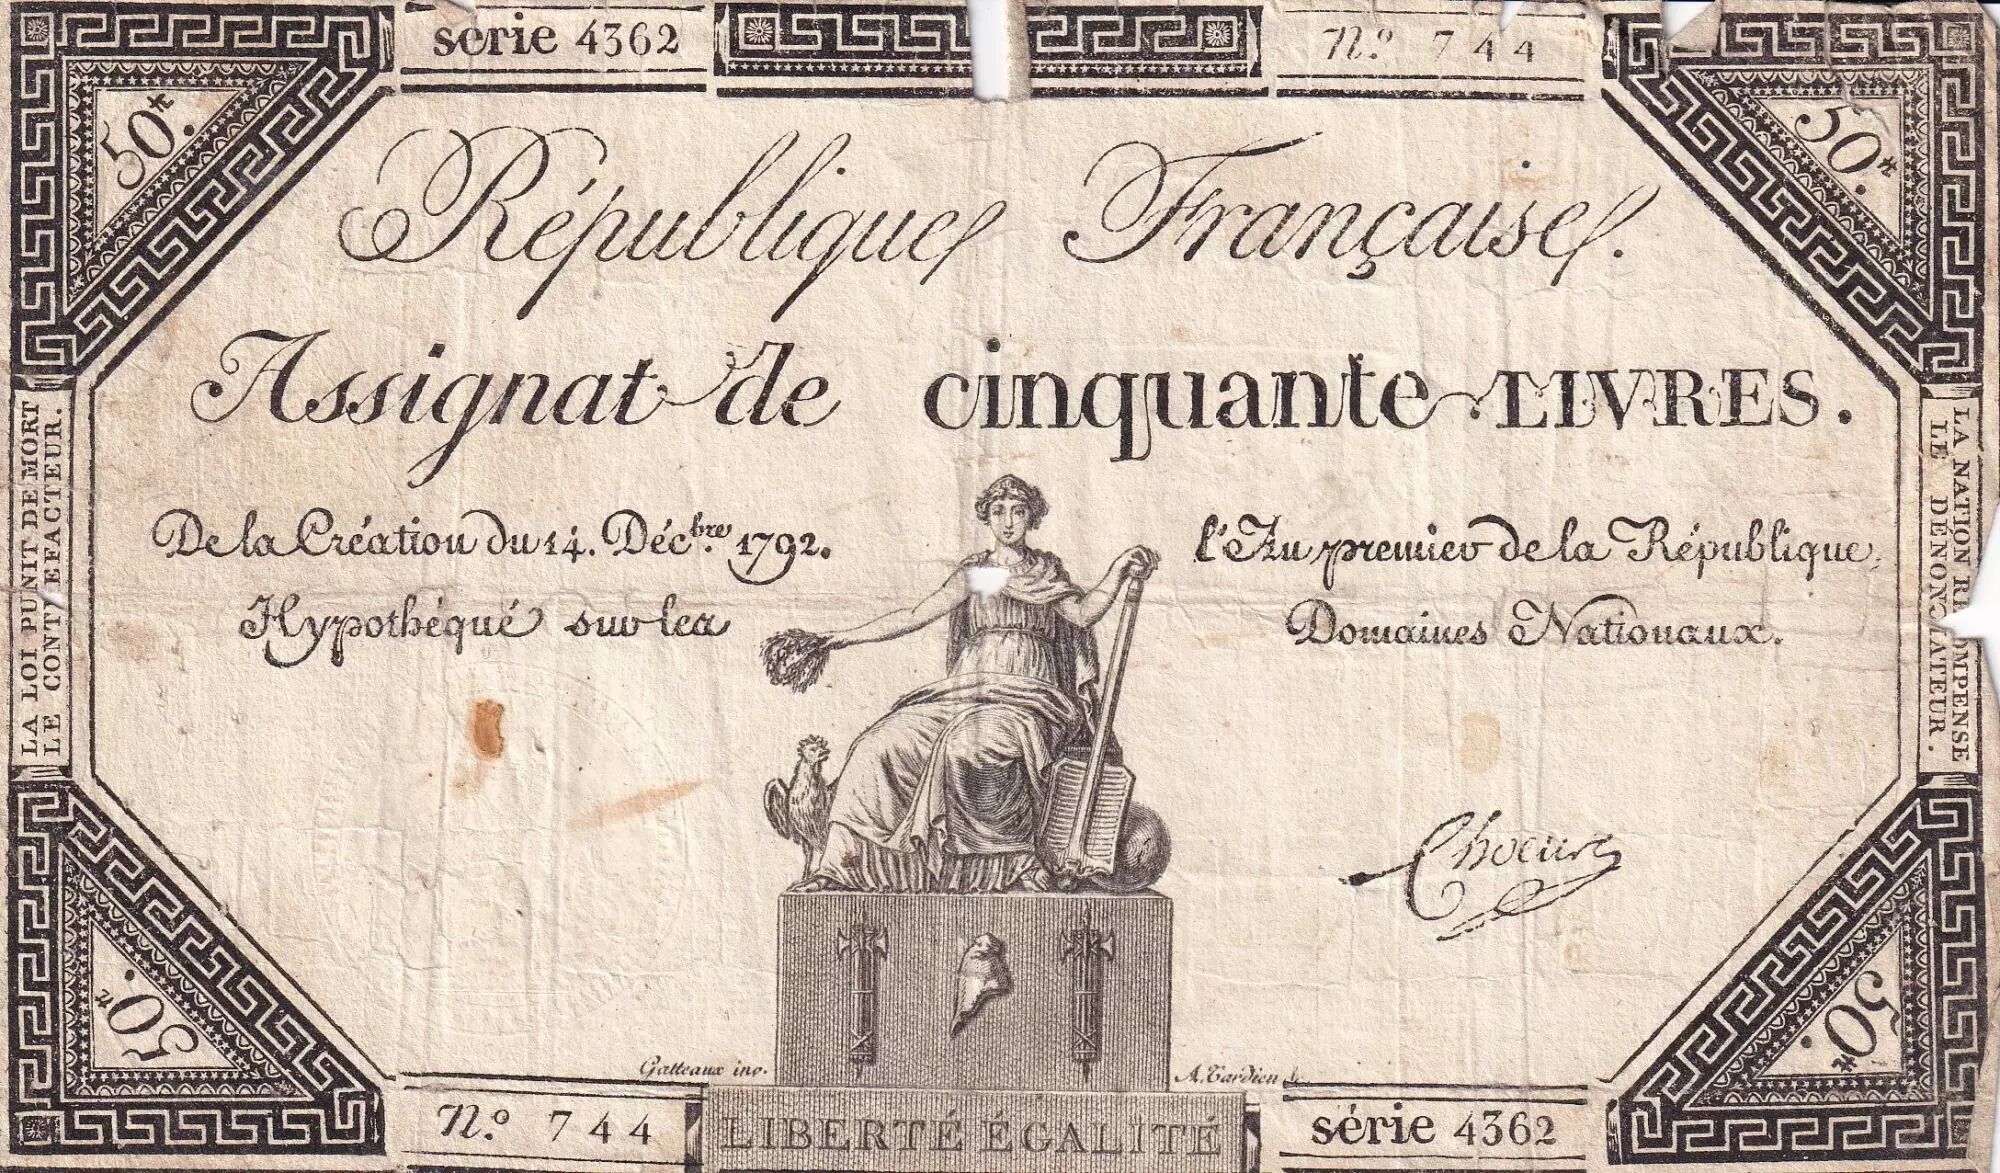 série 4362
N.º 744
50ᵗᵗ.
50ᵗᵗ.
République Française.
Assignat de cinquante LIVRES.
LA LOI PUNIT DE MORT
LE CONTREFACTEUR.
De la Création du 14. Décbre. 1792.
l'An premier de la République,
Hypothéqué sur les
Domaines Nationaux.
LA NATION RÉCOMPENSE
LE DÉNONCIATEUR.
50ᵗᵗ.
50ᵗᵗ.
Gatteaux inv.
A. Tardieu
N.º 744
LIBERTÉ ÉGALITÉ
série 4362